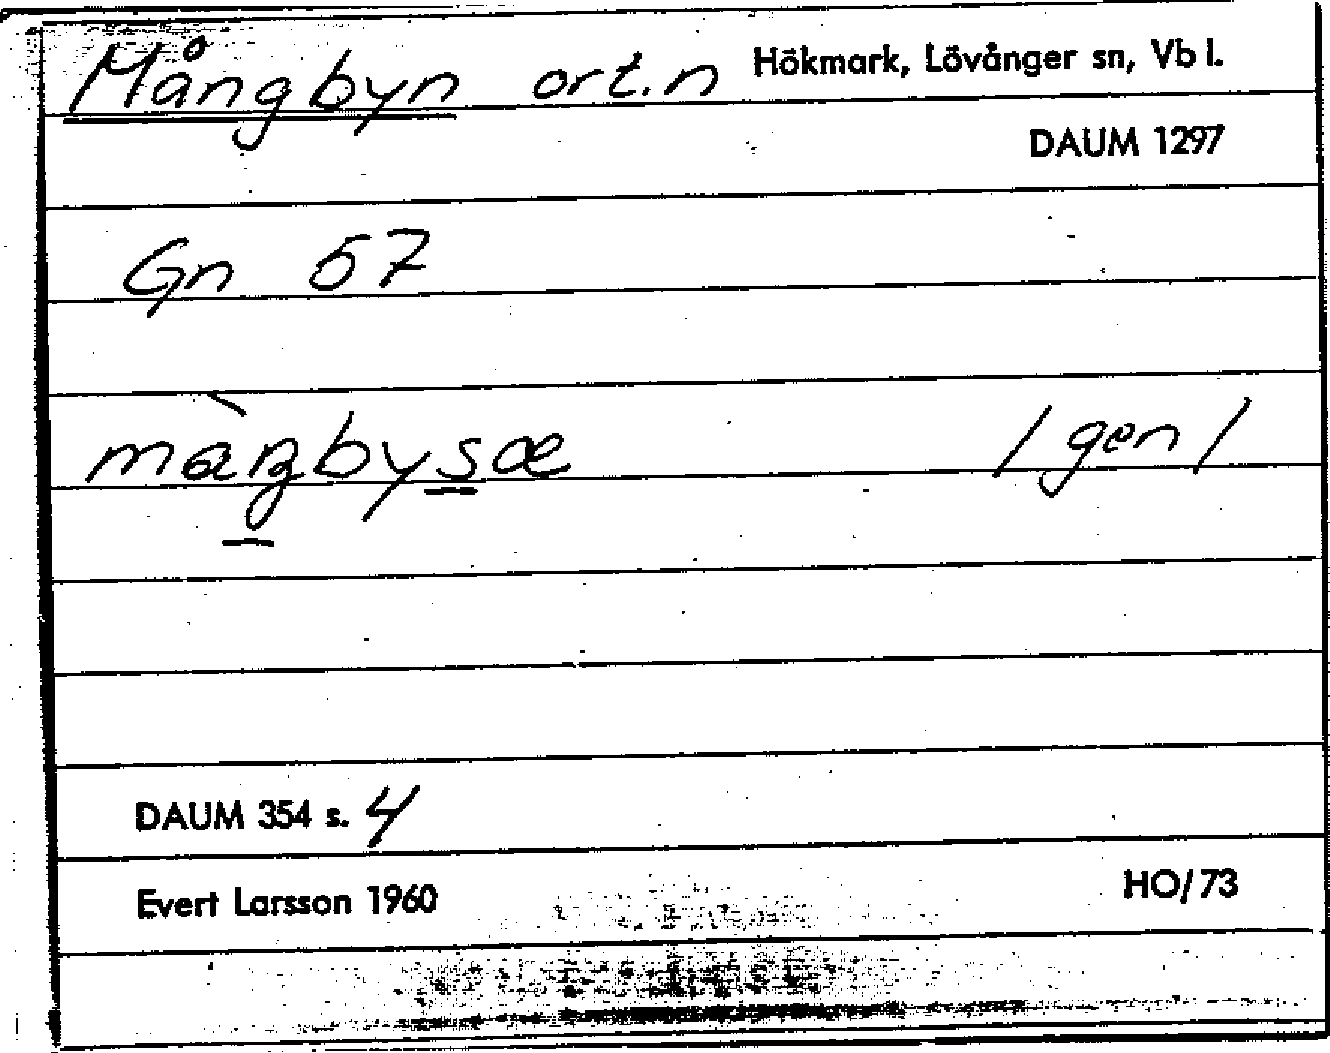 Mångbyn ort.n Hökmark, Lövånger sn, Vb l.
DAUM 1297
Gn 67
/gen/
DAUM 354 s. 4
Evert Larsson 1960 HO/73